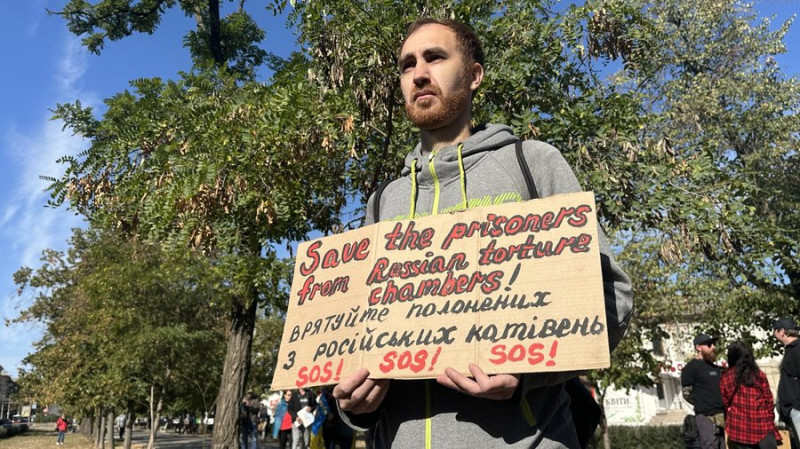 Save the prisoners
from Russian torture
chambers!
ВРЯТУЙТЕ полонених
З російських катівень
SOS! SOS! SOS!
КВІТИ